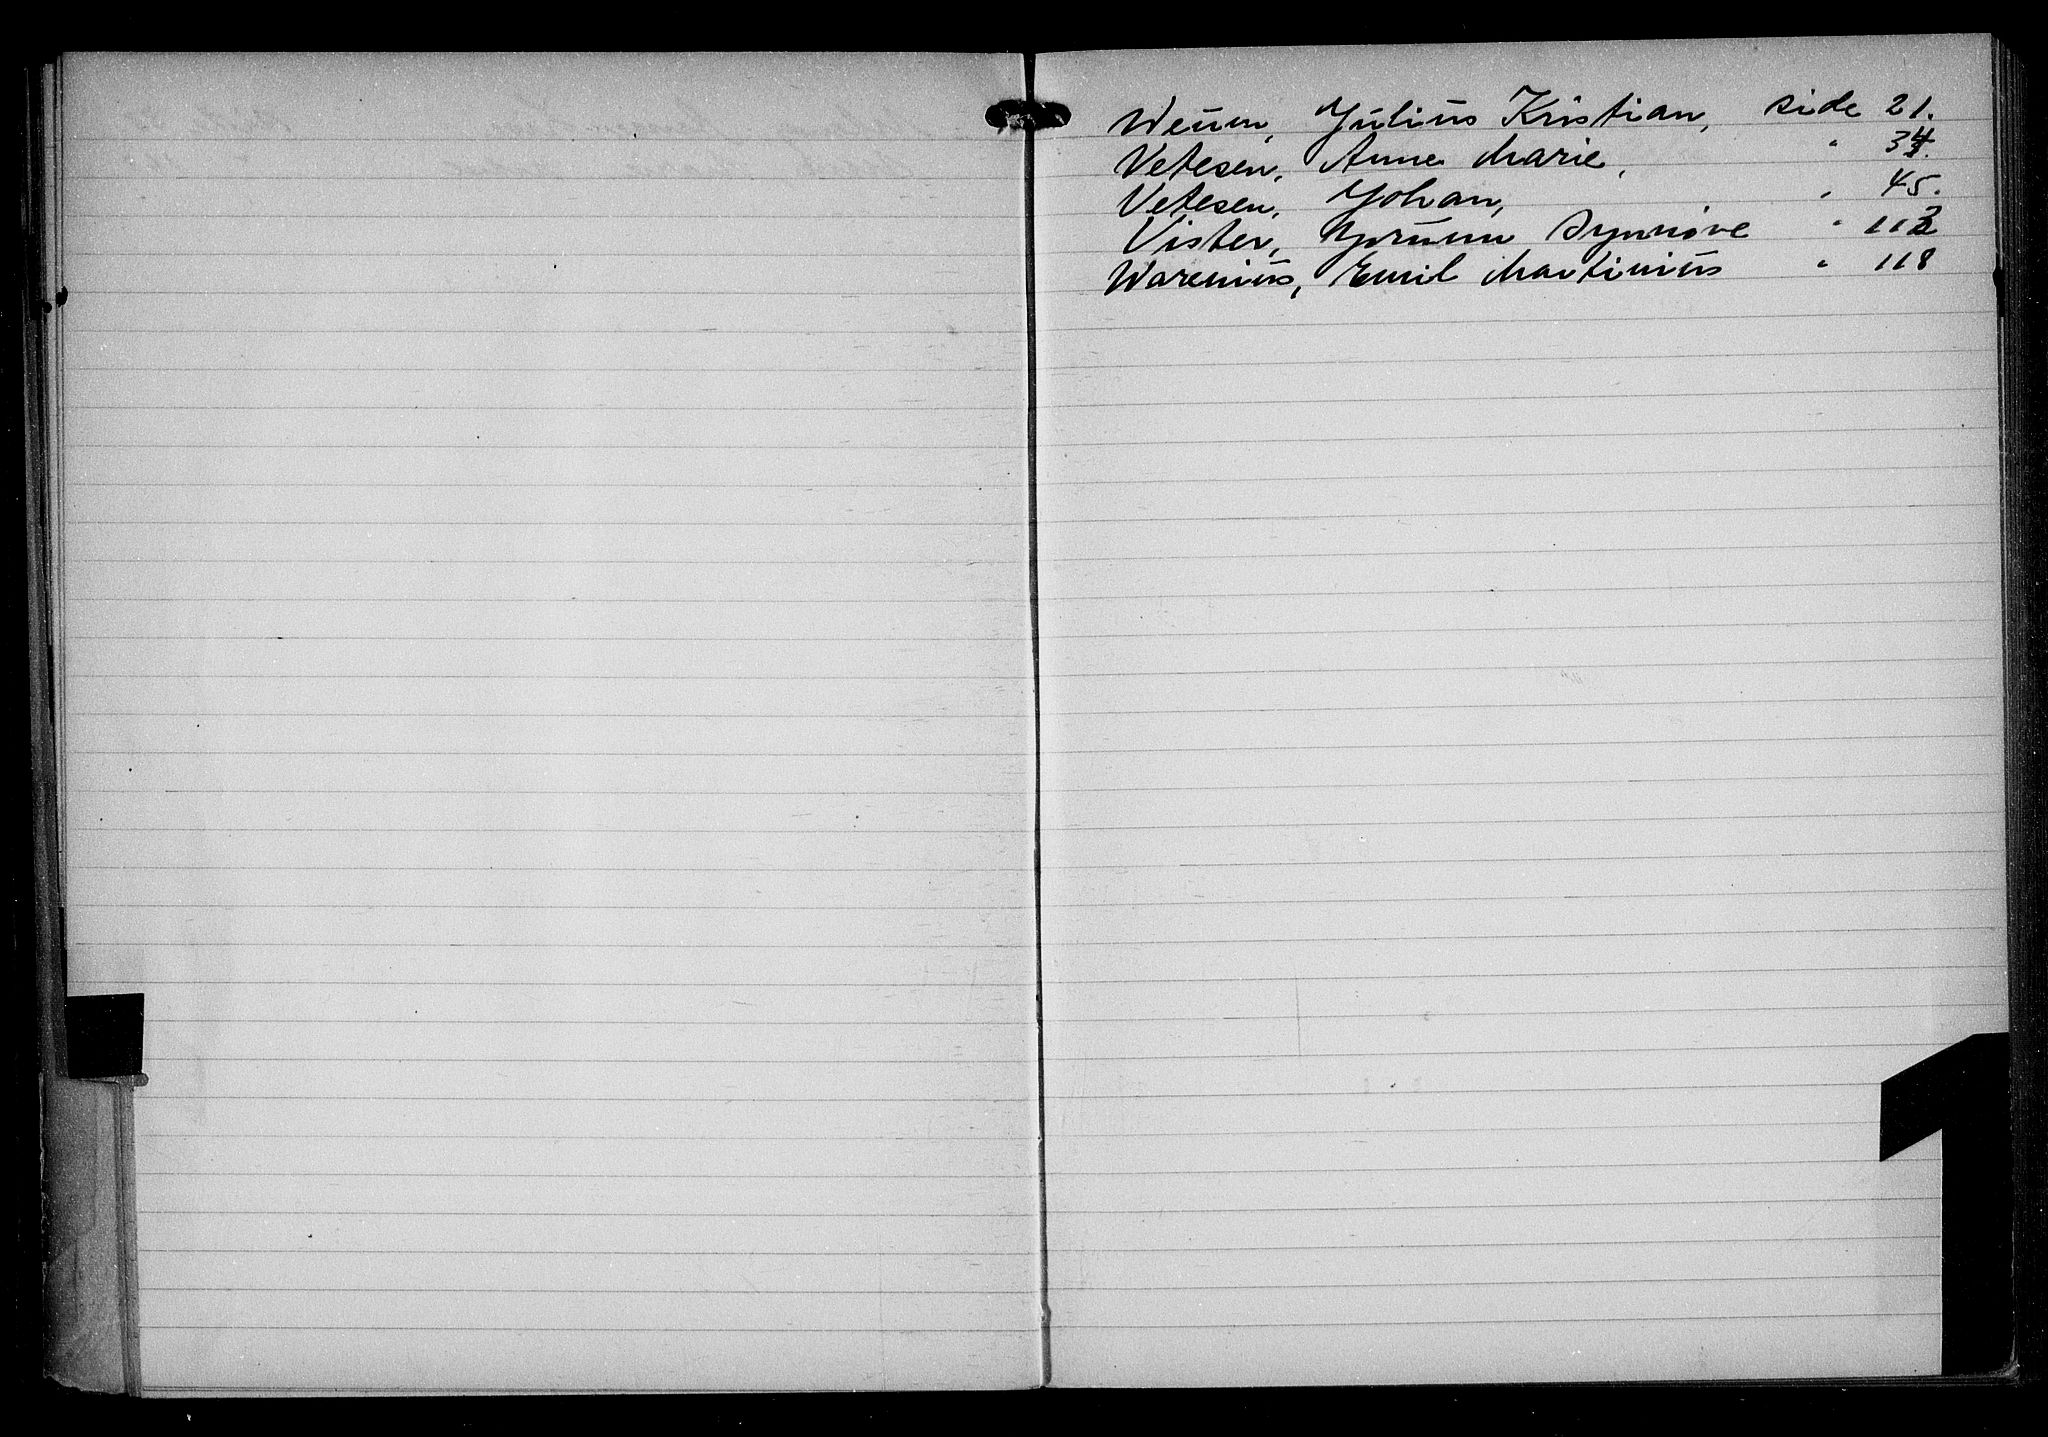 Weum, Julius Kristian, side 21.
Vetesen, Anne Marie, " 34.
Vetesen, Johan, " 45.
Vister, Synnöve " 112
Warenius, Emil Martinius " 118